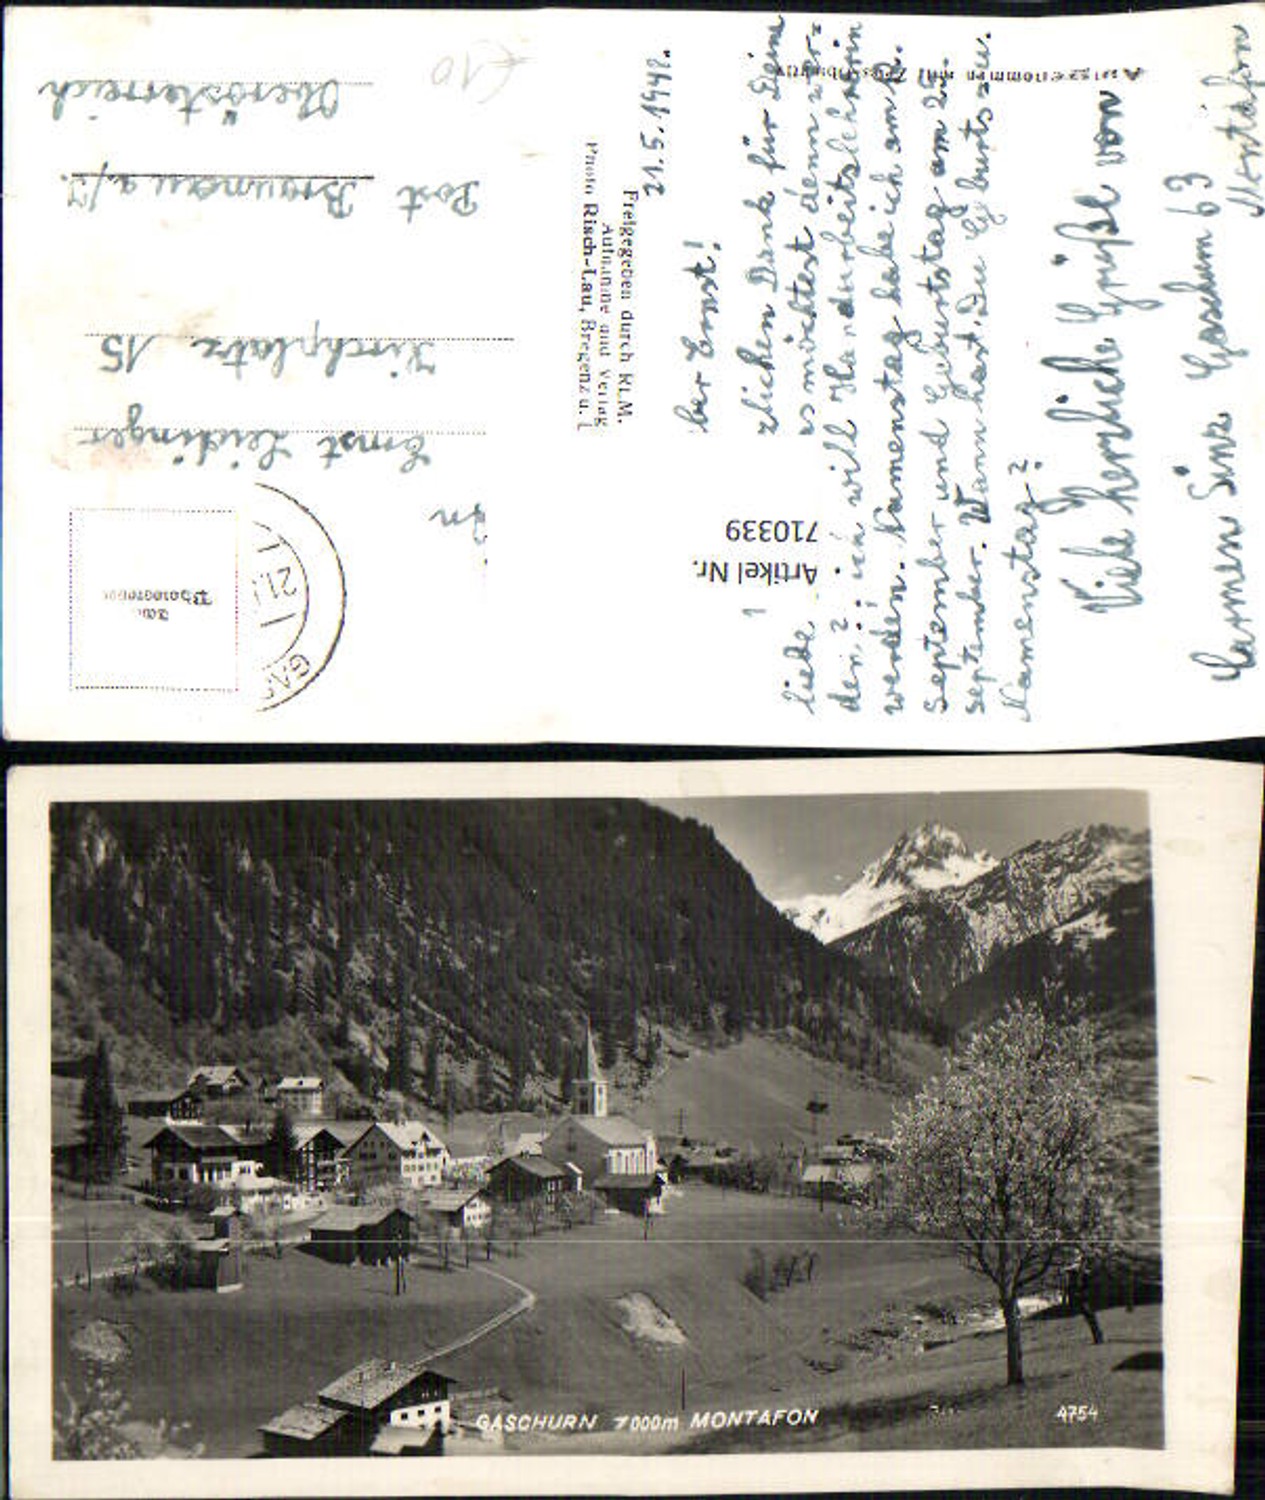 21.5.1948.
ber Ernst!
zlichen Dank für Deine
liebe
es möchtest denn wer=
den? ich will Handarbeitslehrerin
werden. Namenstag habe ich am 12.
September und Geburtstag am 25.
September. Wann hast Du Geburts u.
Namenstag?
Viele herzliche Grüße von
Carmen Gaschurn 63
Montafon
Artikel Nr.
710339
Freigegeben durch RLM.
Aufnahme und Verlag
Photo Risch-Lau, Bregenz u.
Aufgenommen mit
An
Ernst Leidinger
Kirchplatz 15
Post Braunau a/I.
Oberösterreich
€10
21.
GAS
GASCHURN 1000m MONTAFON
4754